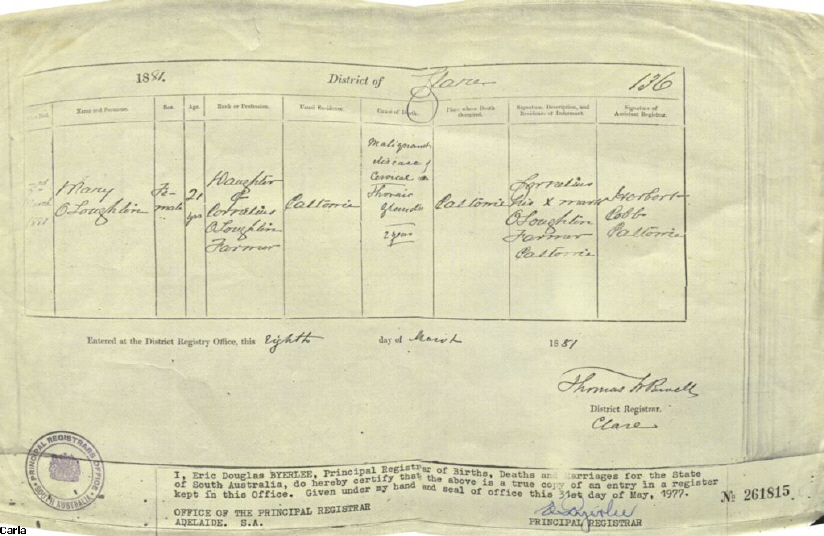 1881. District of Clare 136
Name and Surname. Sex. Age. Rank or Profession. Usual Residence. Cause of Death. Place where Death occurred. Signature, Description, and Residence of Informant. Signature of Assistant Registrar.
1881
Mary
O'Loughlin
Fe-
male
21
yrs
Daughter
of
Cornelius
O'Loughlin
Farmer
Caltowie
Malignant
disease of
Cervical &
Thoracic
glands
2 years
Caltowie
Cornelius
his X mark
O'Loughlin
Farmer
Caltowie
Herbert
Cobb
Caltowie
Entered at the District Registry Office, this Eighth day of March 1881
Thomas
District Registrar.
Clare
PRINCIPAL REGISTRARS OFFICE
SOUTH AUSTRALIA
I, Eric Douglas BYERLEE, Principal Registrar of Births, Deaths and Marriages for the State
of South Australia, do hereby certify that the above is a true copy of an entry in a register
kept in this Office. Given under my hand and seal of office this 31st day of May, 1977.
No 261815
OFFICE OF THE PRINCIPAL REGISTRAR
ADELAIDE. S.A.
PRINCIPAL REGISTRAR
Carla